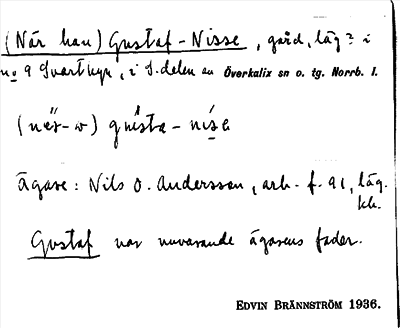 (När han) Gustaf-Nisse, gård, läg? i
no 9 Svartbyn, i S. delen av Överkalix sn o. tg. Norrb. l.
gústa-nísɐ
Ägare: Nils O. Andersson, arb. f. 91, läg.
kb.
Gustaf var nuvarande ägarens fader.
EDVIN BRÄNNSTRÖM 1936.